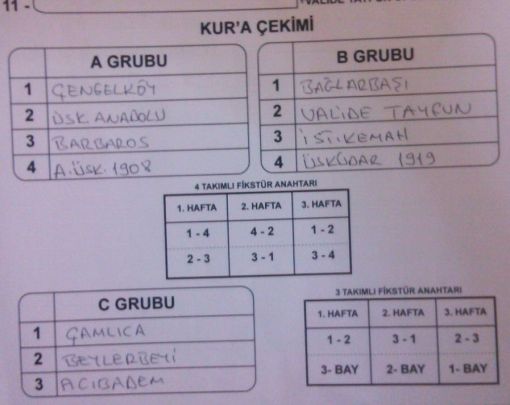 11 -
KUR'A ÇEKİMİ
A GRUBU
1 ÇENGELKÖY
2 ÜSK. ANADOLU
3 BARBAROS
4 A.ÜSK. 1908
B GRUBU
1 BAĞLARBAŞI
2 VALİDE TAYFUN
3 İST.KEMAH
4 ÜSKÜDAR 1919
4 TAKIMLI FİKSTÜR ANAHTARI
1. HAFTA 2. HAFTA 3. HAFTA
1 - 4 4 - 2 1 - 2
2 - 3 3 - 1 3 - 4
C GRUBU
1 ÇAMLICA
2 BEYLERBEYİ
3 ACIBADEM
3 TAKIMLI FİKSTÜR ANAHTARI
1. HAFTA 2. HAFTA 3. HAFTA
1 - 2 3 - 1 2 - 3
3- BAY 2- BAY 1- BAY